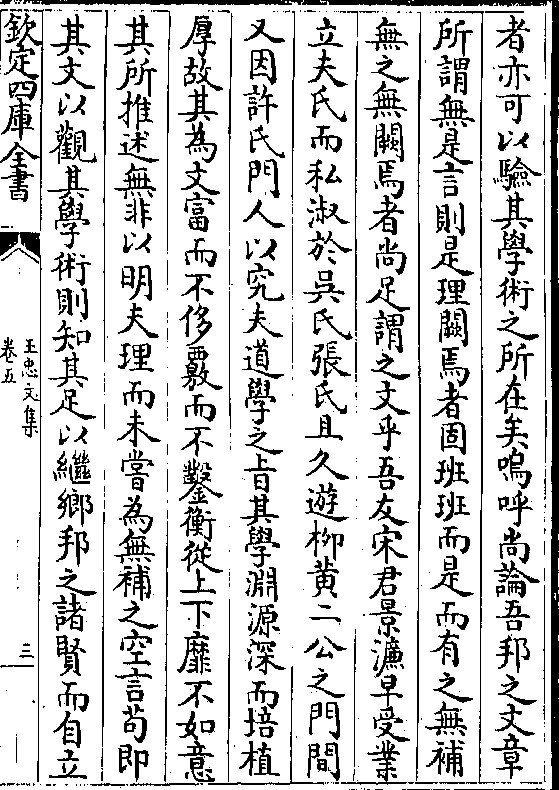 者亦可以驗其學術之所在矣嗚呼尚論吾邦之文章
所謂無是言則是理闕焉者固班班而是而有之無補
無之無闕焉者尚足謂之文乎吾友宋君景濂早受業
立夫氏而私淑於吳氏張氏且久遊柳黃二公之門間
又因許氏門人以究夫道學之旨其學淵源深而培植
厚故其為文富而不侈覈而不鑿衡從上下靡不如意
其所推述無非以明夫理而未嘗為無補之空言苟即
其文以觀其學術則知其足以繼鄉邦之諸賢而自立
欽定四庫全書
王忠文集
卷五
三